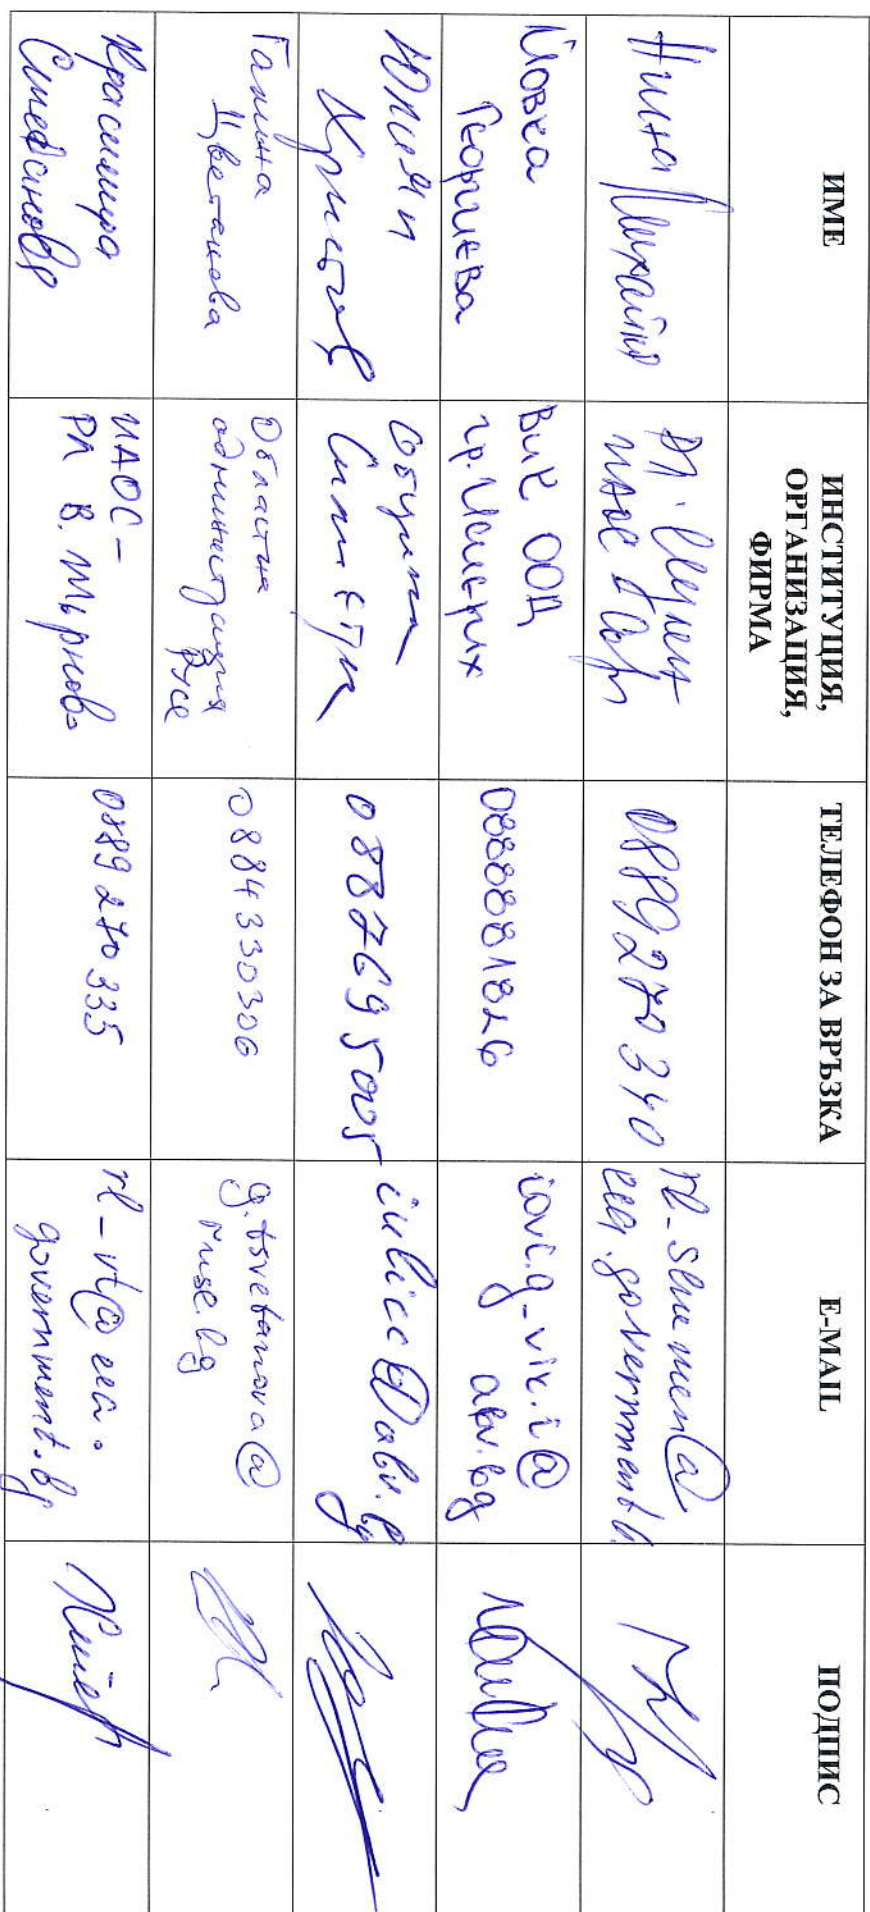 ИМЕ
ИНСТИТУЦИЯ,
ОРГАНИЗАЦИЯ,
ФИРМА
ТЕЛЕФОН ЗА ВРЪЗКА
E-MAIL
ПОДПИС
Нина
0889270340
rl-shumen@
eea.government.b
Йовка
Георгиева
ВиК ООД
гр. Исперих
0888881826
iovi.g_vik.i@
abv.bg
Юлиян
Христов
Община
0887695005
iulicc@abv.bg
Галина
Цветанова
Областна
администрация
Русе
0884330306
g.tsvetanova@
ruse.bg
Красимира
Стефанова
ИАОС-
РЛ В. Търново
0889 270 335
rl-vt@eea.
government.bg